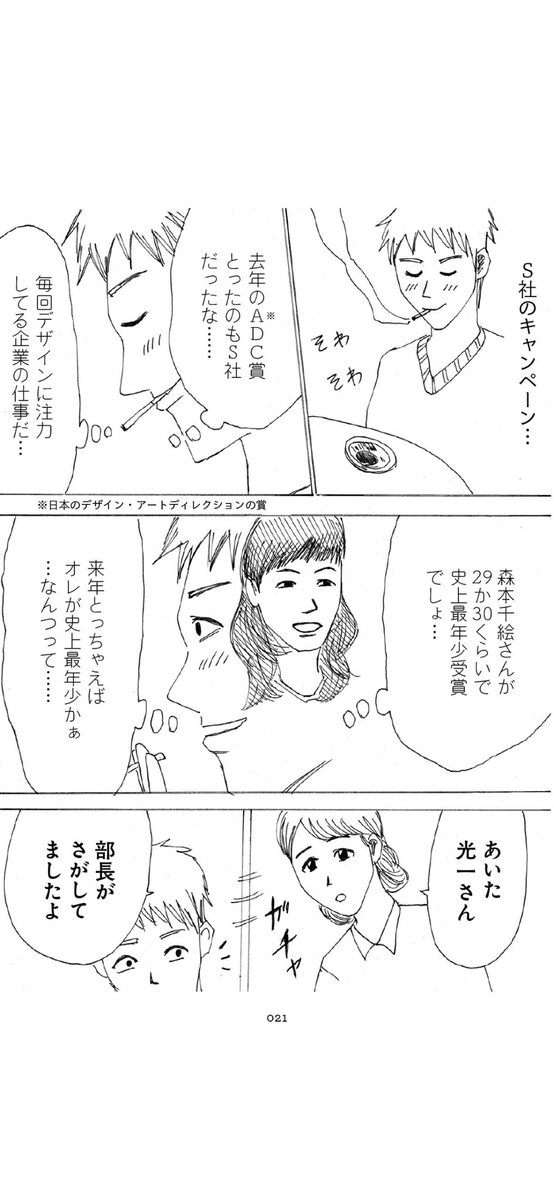 S社のキャンペーン…
そわ
そわ
去年のADC賞
※
とったのもS社
だったな……
毎回デザインに注力
してる企業の仕事だ…
※日本のデザイン・アートディレクションの賞
森本千絵さんが
29か30くらいで
史上最年少受賞
でしょ…
来年とっちゃえば
オレが史上最年少かぁ
…なんつって……
あいた
光一さん
ガチャ
部長が
さがして
ましたよ
021